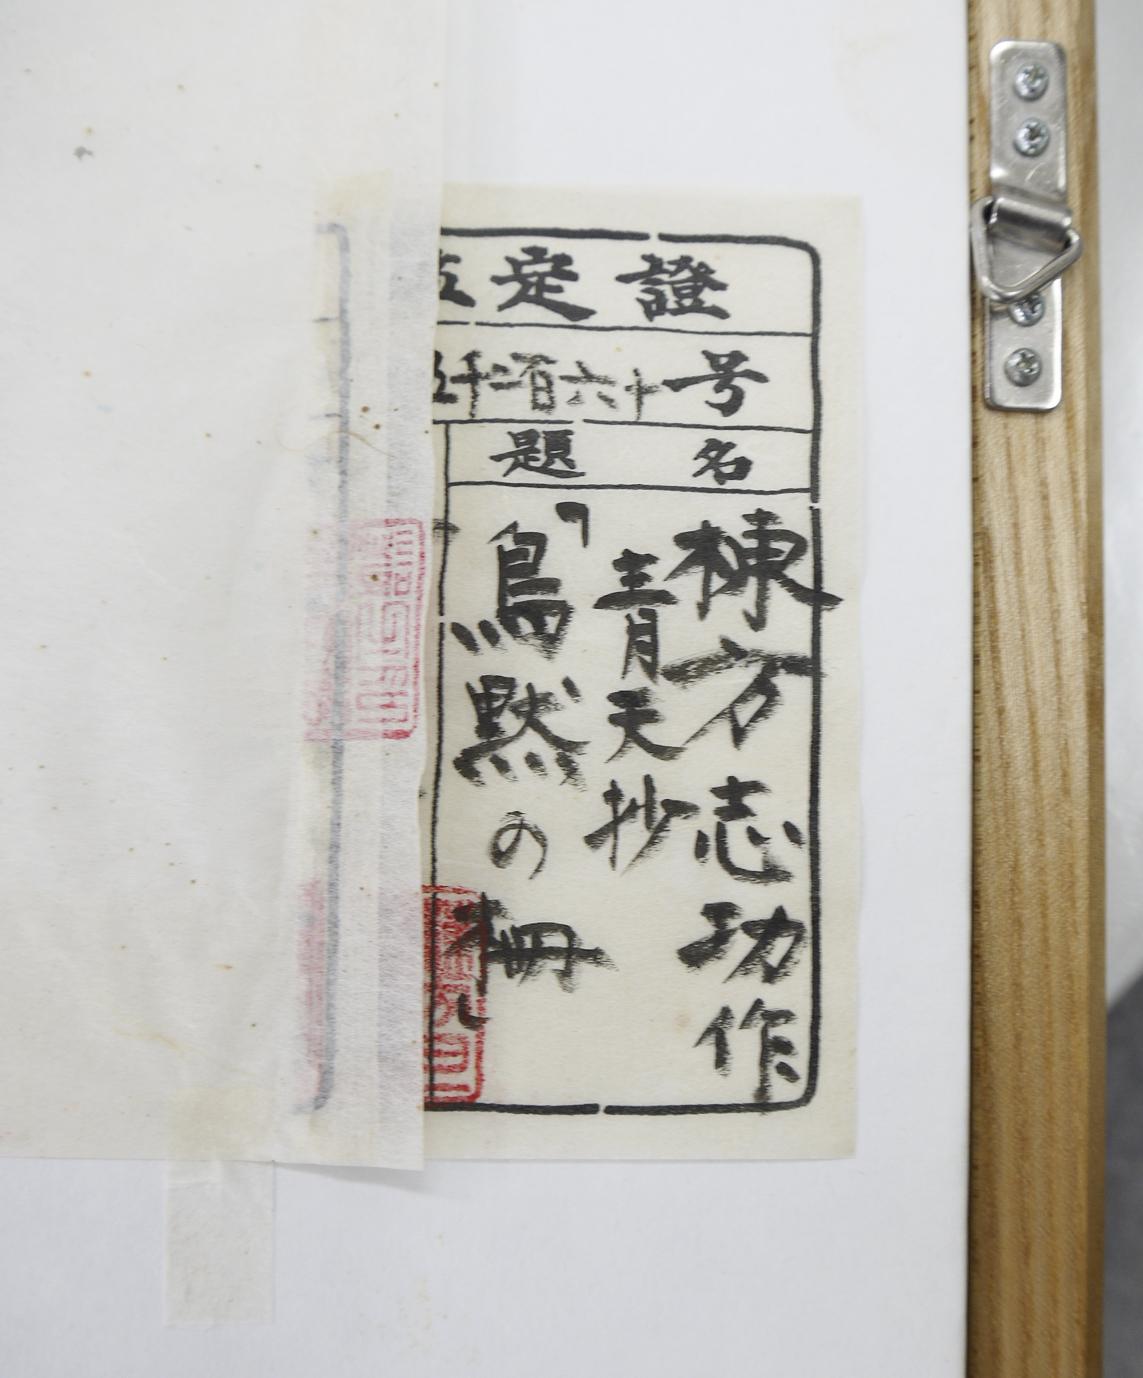 定證
千二百六十号
題名
棟方志功作
青天抄
「鳥黙の柵」